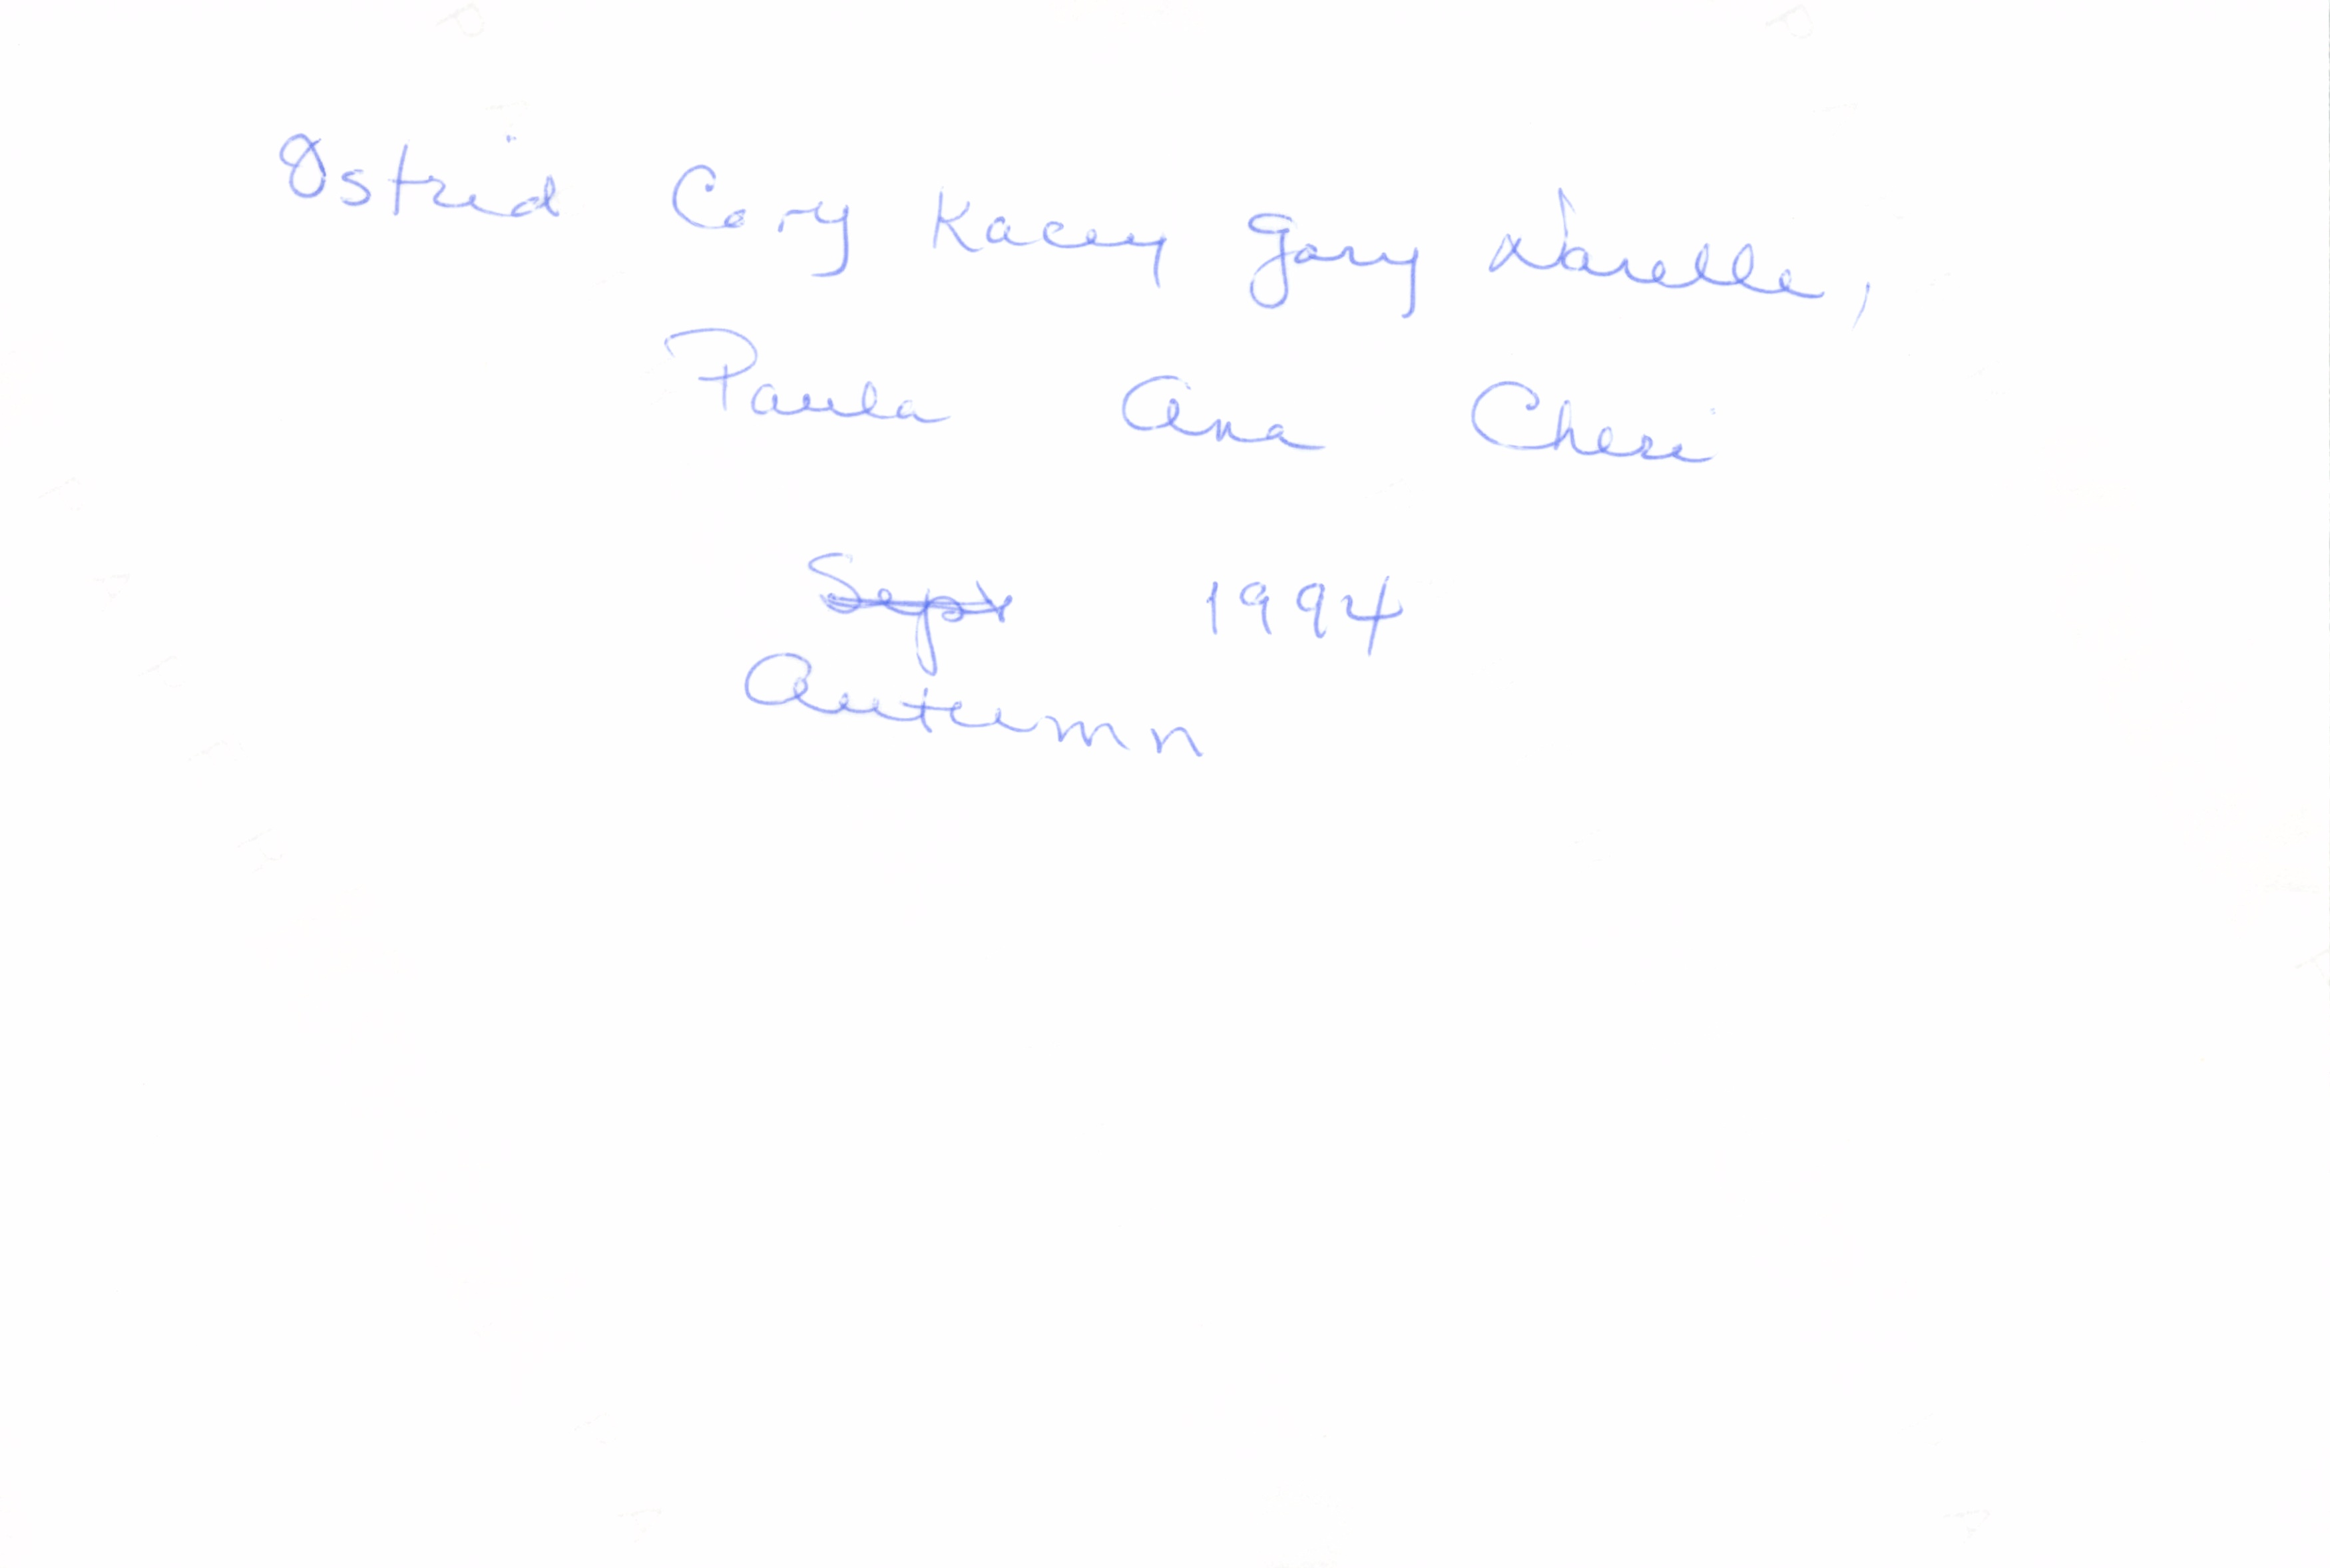 Ostrid Cory Kacey Gary Narelle,
Paula Ana Cheri
Sept 1994
Autumn